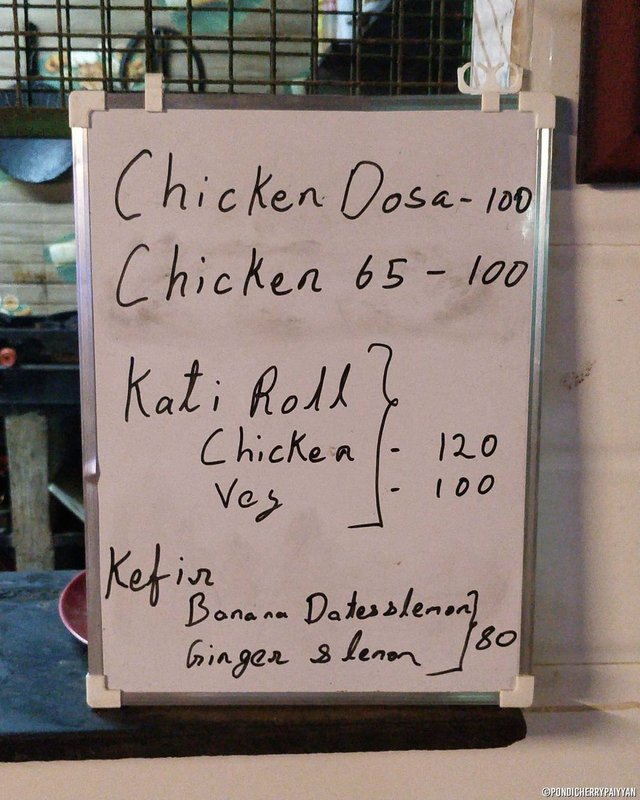 Chicken Dosa - 100
Chicken 65 - 100
Kati Roll
Chicken - 120
Veg - 100
Kefir
Banana Dates & lemon
Ginger & lemon 80
©PONDICHERRYPAIYYAN